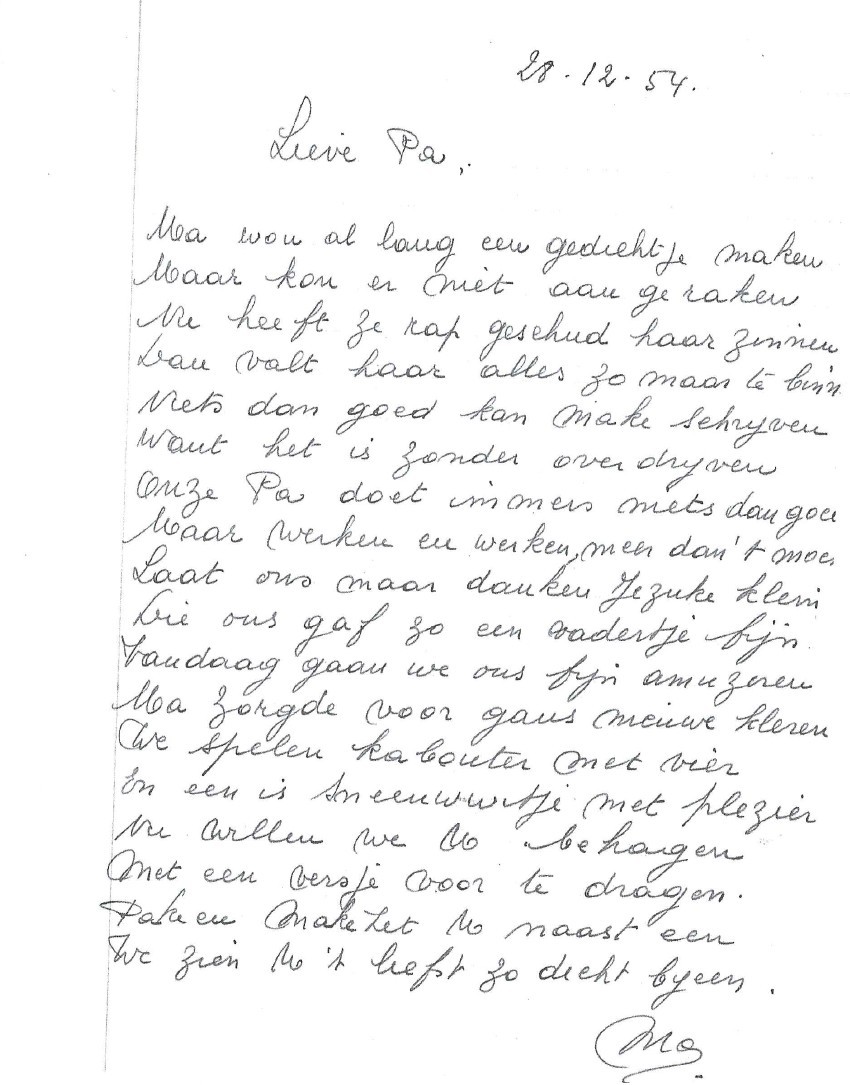 28.12.54.
Lieve Pa,
Ma wou al lang een gedichtje maken
Maar kon er niet aan geraken
Nu heeft ze rap geschud haar zinnen
Dan valt haar alles zo maar te binn
Niets dan goed kan make schrijven
Want het is zonder overdrijven
Onze Pa doet immers niets dan goe
Maar werken en werken, meer dan 't moe
Laat ons maar danken Jezuke klein
Die ons gaf zo een vadertje fijn.
Vandaag gaan we ons fijn amuzeren
Ma zorgde voor gans nieuwe kleren
We spelen kabouter met vier
En een is sneeuwwitje met plezier
Nu willen we U behagen
Met een versje voor te dragen.
Pake en Make Zet U naast een
We zien U 't liefst zo dicht bijeen.
Ma